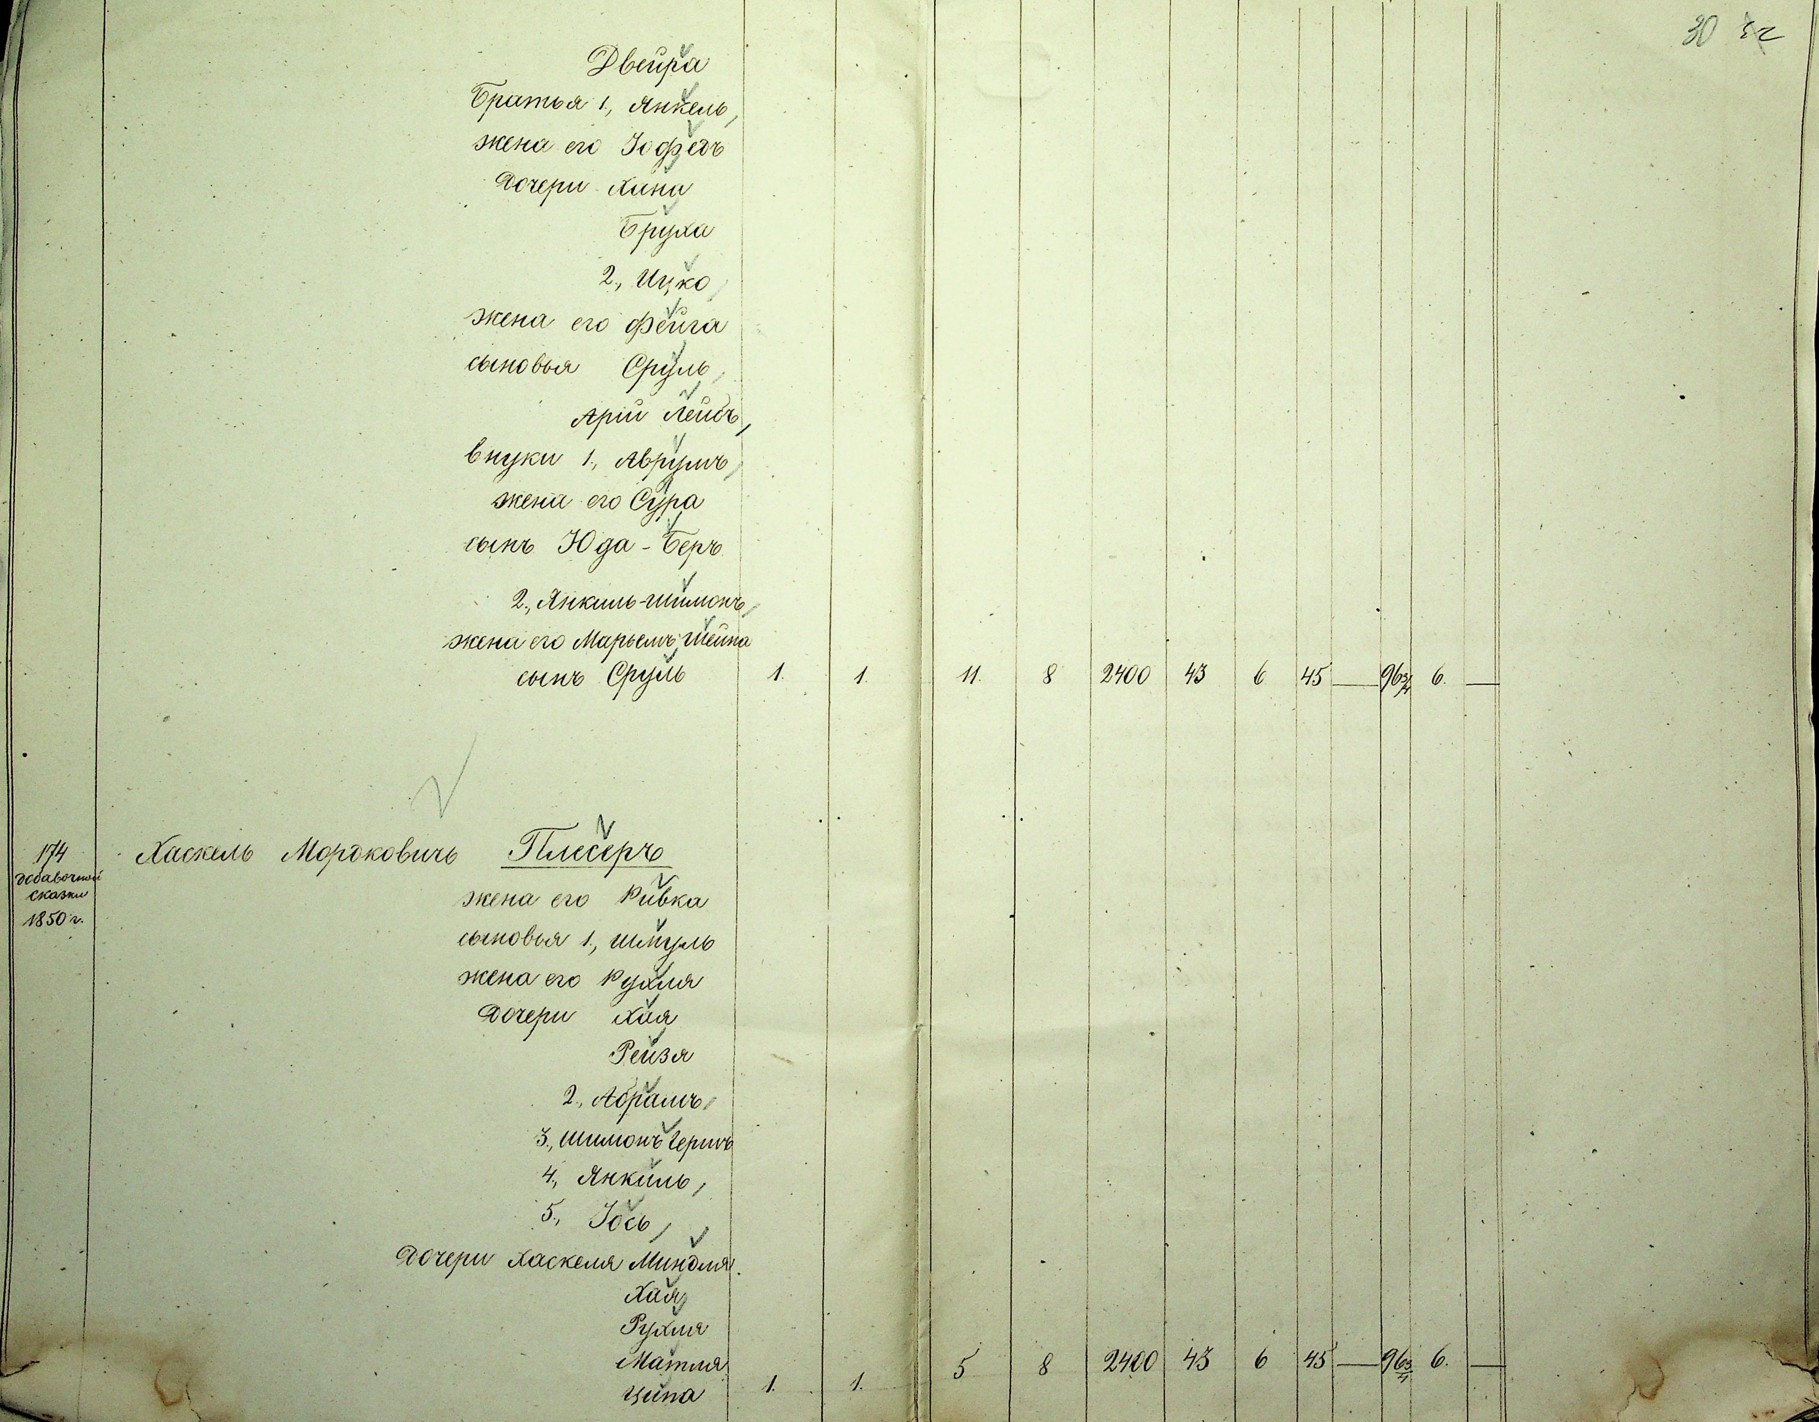 30
Двейра
Братья 1., Янкель,
жена его Іофеъ
Дочери Хана
Бруха
2., Ицко,
жена его Фейга
сыновья Сруль,
Арій Лейбъ,
внуки 1., Аврумъ,
жена его Сура
сынъ Юда-Беръ
2., Янкиль-Шимонъ,
жена его Марьемъ Шейна
сынъ Сруль 1. 1. 11. 8 2400 43 6 45 — 96 3/4 6. —
174 Хаскель Мордковичъ Плесеръ
добавочной
сказки
1850 г.
жена его Ривка
сыновья 1., Шмуль
жена его Рухля
Дочери Хая
Рейзя
2., Абрамъ,
3., Шимонъ Гершъ
4., Янкиль,
5., Іось,
Дочери Хаскеля Миндля.
Хая
Рухля
Матля 5 8 2400 43 6 45 — 96 3/4 6. —
Ципа 1. 1.